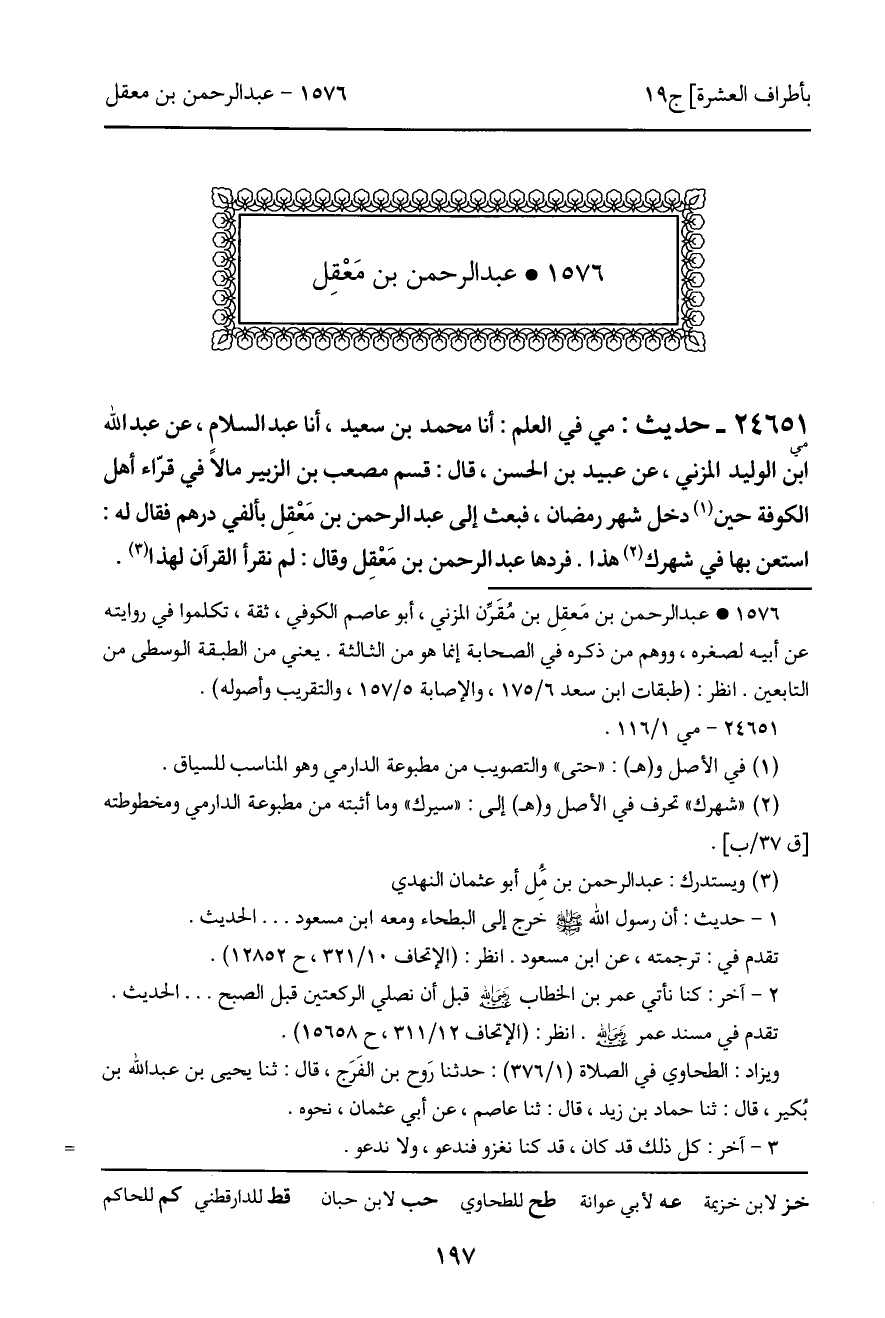 بأطراف العشرة] ج١٩
١٥٧٦ - عبدالرحمن بن معقل
١٥٧٦ • عبدالرحمن بن مَعْقِل
٢٤٦٥١ ـ حديث : مي في العلم : أنا محمد بن سعيد ، أنا عبدالسلام ، عن عبدالله
مي
ابن الوليد المزني ، عن عبيد بن الحسن ، قال : قسم مصعب بن الزبير مالاً في قرّاء أهل
الكوفة حين(١) دخل شهر رمضان ، فبعث إلى عبدالرحمن بن مَعْقِل بألفي درهم فقال له :
استعن بها في شهرك(٢) هذا . فردها عبدالرحمن بن مَعْقِل وقال : لم نقرأ القرآن لهذا(٣) .
١٥٧٦ • عبدالرحمن بن مَعقِل بن مُقَرِّن المزني ، أبو عاصم الكوفي ، ثقة ، تكلموا في روايته
عن أبيه لصغره ، ووهم من ذكره في الصحابة إنما هو من الثالثة . يعني من الطبقة الوسطى من
التابعين . انظر : (طبقات ابن سعد ١٧٥/٦ ، والإصابة ١٥٧/٥ ، والتقريب وأصوله) .
٢٤٦٥١ - مي ١١٦/١ .
(١) في الأصل و(هـ) : «حتى» والتصويب من مطبوعة الدارمي وهو المناسب للسياق .
(٢) «شهرك» تحرف في الأصل و(هـ) إلى : «سيرك» وما أثبته من مطبوعة الدارمي ومخطوطته
[ق ٣٧/ب] .
(٣) ويستدرك : عبدالرحمن بن مُّل أبو عثمان النهدي
١ - حديث : أن رسول الله ﷺ خرج إلى البطحاء ومعه ابن مسعود . . . الحديث .
تقدم في : ترجمته ، عن ابن مسعود . انظر : (الإتحاف ٣٢١/١٠ ، ح ١٢٨٥٢) .
٢ - آخر : كنا نأتي عمر بن الخطاب رضي الله عنه قبل أن نصلي الركعتين قبل الصبح . . . الحديث .
تقدم في مسند عمر رضي الله عنه . انظر : (الإتحاف ٣١١/١٢ ، ح ١٥٦٥٨) .
ويزاد : الطحاوي في الصلاة (٣٧٦/١) : حدثنا رَوح بن الفَرَج ، قال : ثنا يحيى بن عبدالله بن
بُكير ، قال : ثنا حماد بن زيد ، قال : ثنا عاصم ، عن أبي عثمان ، نحوه .
٣ - آخر : كل ذلك قد كان ، قد كنا نغزو فندعو ، ولا ندعو . =
خز لابن خزيمة عه لأبي عوانة طح للطحاوي حب لابن حبان قط للدارقطني كم للحاكم
١٩٧